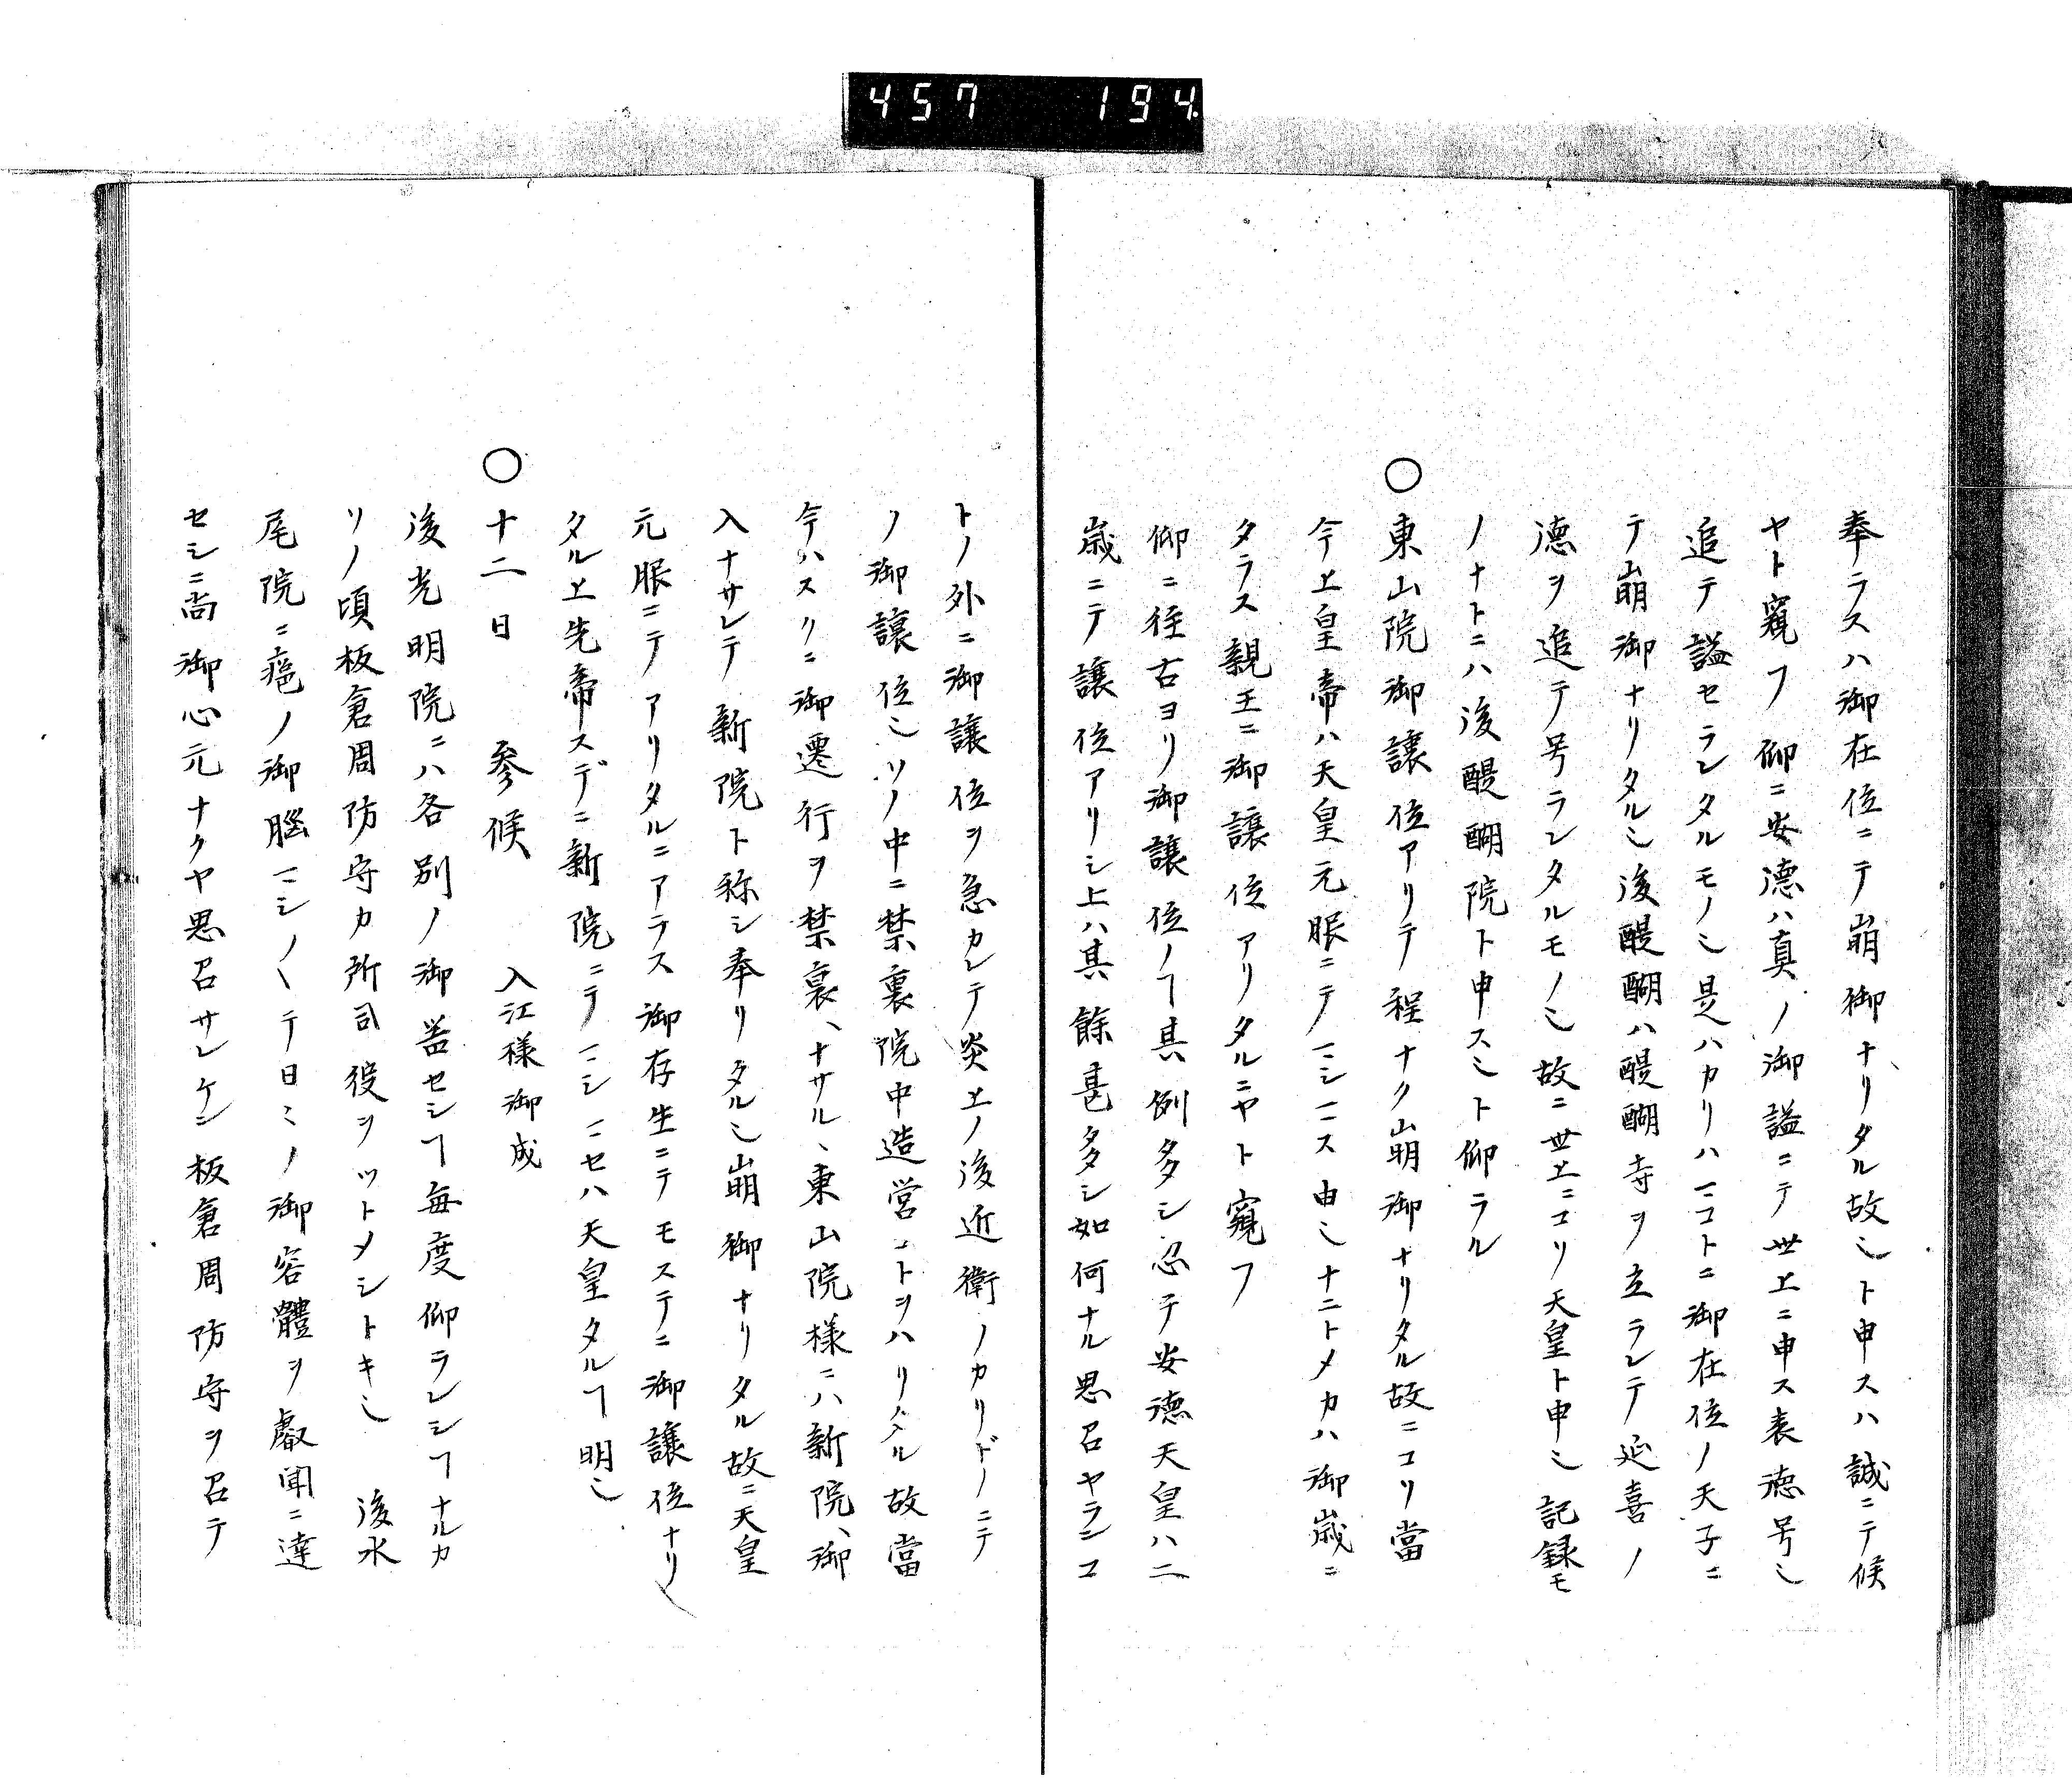 457 194
奉ラスハ御在位ニテ崩御ナリタル故ミト申スハ誠ニテ候
ヤト窺フ 仰ニ安德ハ真ノ御謚ニテ世上ニ申ス表徳号ミ
追テ謚セラレタルモノミ是ハカリハマコトニ御在位ノ天子ニ
テ崩御ナリタルミ後醍醐ハ醍醐寺ヲ立ラレテ延喜ノ
德ヲ追テ号ラレタルモノミ故ニ世上ニヨリ天皇ト申ミ記録モ
ノナトニハ後醍醐院ト申スミト仰ラル
〇東山院御譲位アリテ程ナク崩御ナリタル故ニコソ當
今上皇帝ハ天皇元服ニテマシマス由ミナニトメカハ御歳ニ
タラス親王ニ御譲位アリタルニヤト窺フ
仰ニ往古ヨリ御譲位ノヿ其例多シ忍テ安德天皇ハ二
歳ニテ譲位アリシ上ハ其餘甚多シ如何ナル思召ヤランコ
トノ外ニ御譲位ヲ急カレテ炎上ノ後近衛ノカリドノニテ
ノ御譲位ミソノ中ニ禁裏院中造営コトヲハリタル故當
今ハスクニ御遷行ヲ禁裏ヽナサルヽ東山院様ニハ新院ヽ御
入ナサレテ新院ト称シ奉リタルミ崩御ナリタル故ニ天皇
元服ニテアリタルニアラス御存生ニテモステニ御譲位ナリ
タル上先帝スデニ新院ニテマシマセハ天皇タルヿ明ミ
〇十二日 参候 入江様御成
後光明院ニハ各別ノ御器セシヿ毎度仰ラレシヿナルカ
ソノ頃板倉周防守カ所司役ヲツトメシトキミ 後水
尾院ニ疱ノ御腦マシ〱テ日ミノ御容體ヲ叡聞ニ達
セシニ尚御心元ナクヤ思召サレケン板倉周防守ヲ召テ